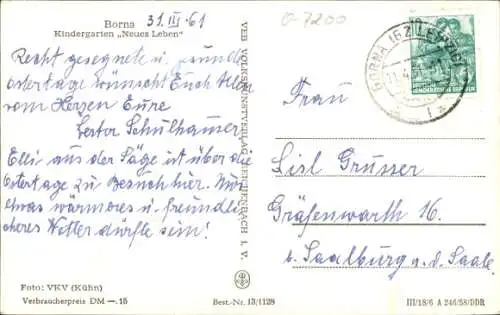 Borna
Kindergarten „Neues Leben"
31. III. 61
o-7200
Recht gesegnete u.
Ostertage wünscht Euch Allen
vom Herzen Eure
Schulhauser
Elli aus der Säge ist über die
Ostertage zu Besuch hier. Nur
etwas wärmeres u. freundli
cheres Wetter dürfte sein!
Foto: VKV (Kühn)
Verbraucherpreis DM —.15
Best.-Nr. 13/1128
VEB VOLKSKUNSTVERLAG REICHENBACH I. V.
BORNA (BZ LEIPZIG)
DEUTSCHE DEMOKRATISCHE REPUBLIK
Frau
Lisl Grusser
Gräfenwarth 16.
b. Saalburg a. d. Saale
III/18/6 A 246/58/DDR